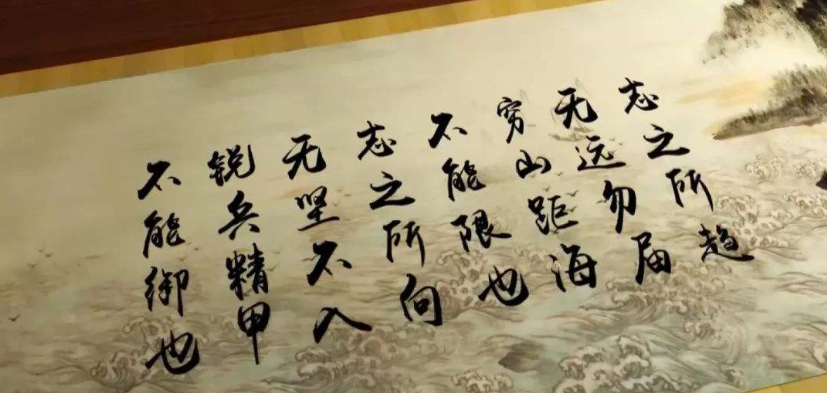 志之所趋
无远勿届
穷山距海
不能限也
志之所向
无坚不入
锐兵精甲
不能御也